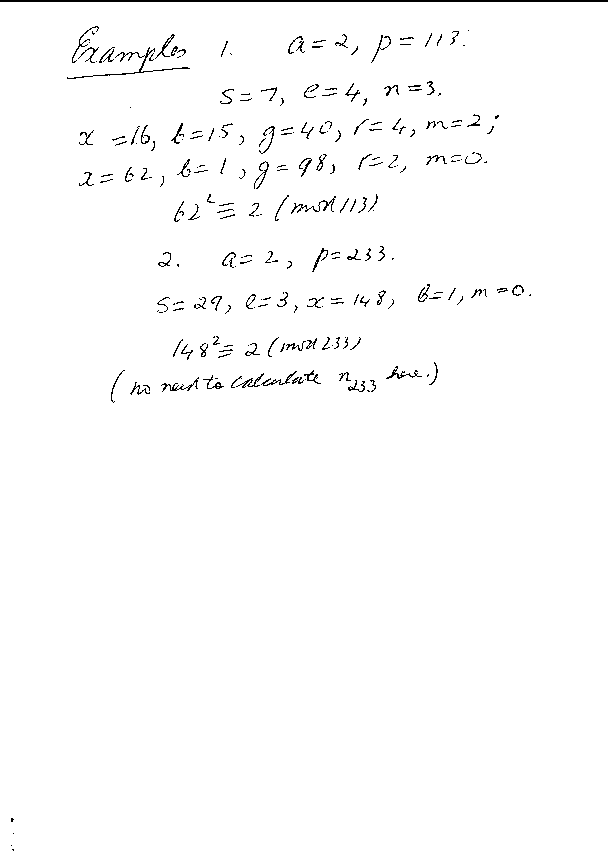 Examples 1. a = 2, p = 113.
s = 7, e = 4, n = 3.
x = 16, b = 15, g = 40, r = 4, m = 2;
x = 62, b = 1, g = 98, r = 2, m = 0.
62² ≡ 2 (mod 113)
2. a = 2, p = 233.
s = 29, e = 3, x = 148, b = 1, m = 0.
148² ≡ 2 (mod 233)
(no need to calculate n₂₃₃ here.)